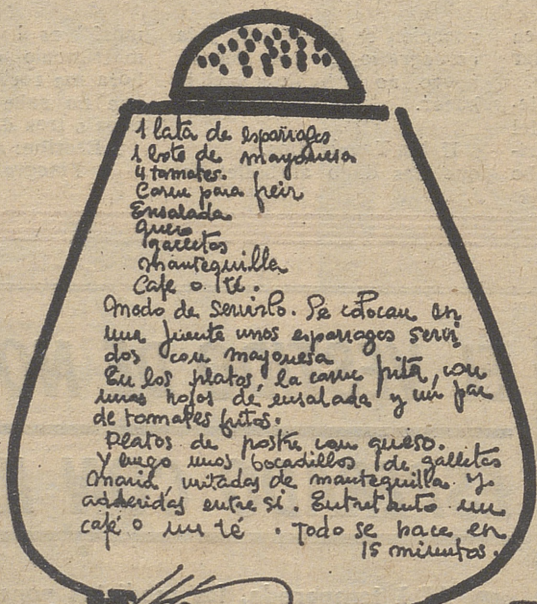 1 lata de esparragos
1 bote de mayonesa
4 tomates.
Carne para freir
Ensalada
queso
galletas
mantequilla
Café o té.
Modo de servirlo. Se colocan en
una fuente unos esparragos servi
dos con mayonesa
En los platos, la carne frita, con
unas hojas de ensalada y un par
de tomates fritos.
Platos de postre con queso.
Y luego unos bocadillos, de galletas
María, untadas de mantequilla y
adheridas entre si. Entretanto un
café o un té. Todo se hace en
15 minutos.